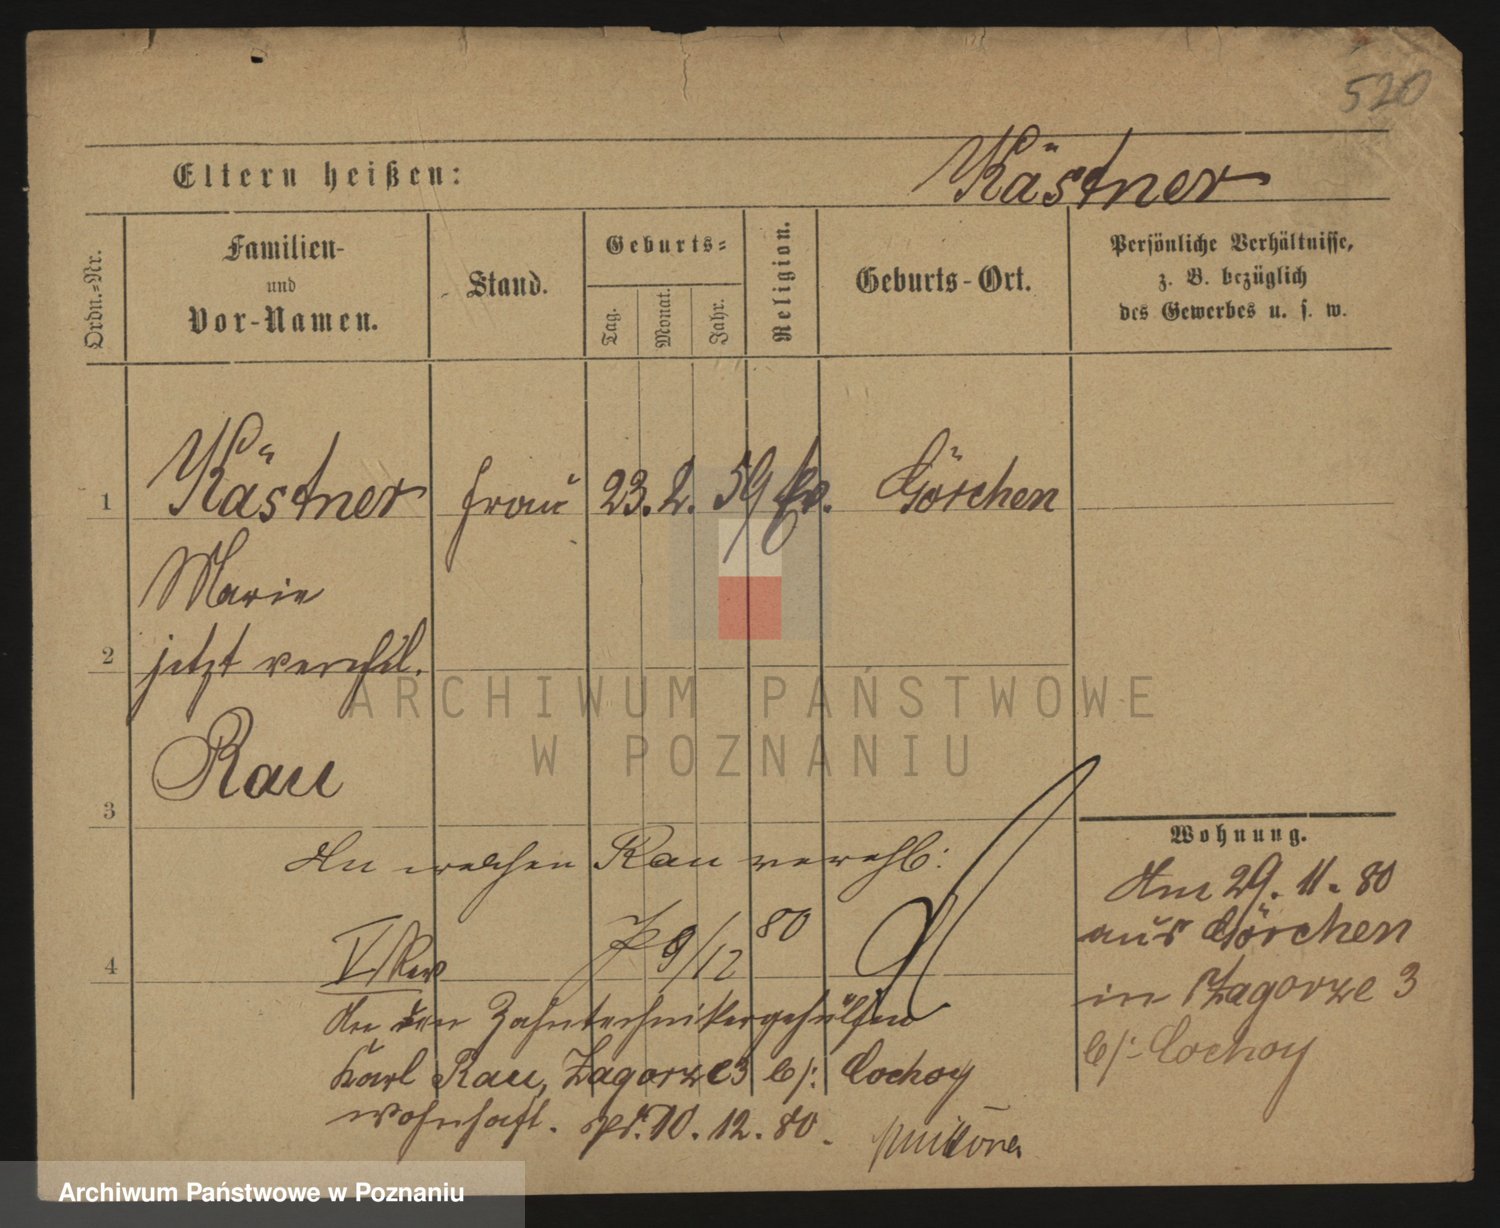 520
Eltern heißen:
Kästner
Ordn.-Nr.
Familien-
und
Vor-Namen.
Stand.
Geburts-
Tag.
Monat.
Jahr.
Religion.
Geburts-Ort.
Persönliche Verhältnisse,
z. B. bezüglich
des Gewerbes u. s. w.
1
Kästner Frau 23. 2. 59 Ev. Görchen
Marie
2
jetzt verehel.
Rau
3
ARCHIWUM PAŃSTWOWE
W POZNANIU
Wohnung.
Am 29. 11. 80
aus Görchen
in Zagorze 3
b/: Cochoy
An welchen Rau verehl:
4
V. Rev 9/12 80
An den Zahntechnikergehülfen
Karl Rau, Zagorze 3 b/: Cochoy
wohnhaft. 10. 12. 80.
Archiwum Państwowe w Poznaniu